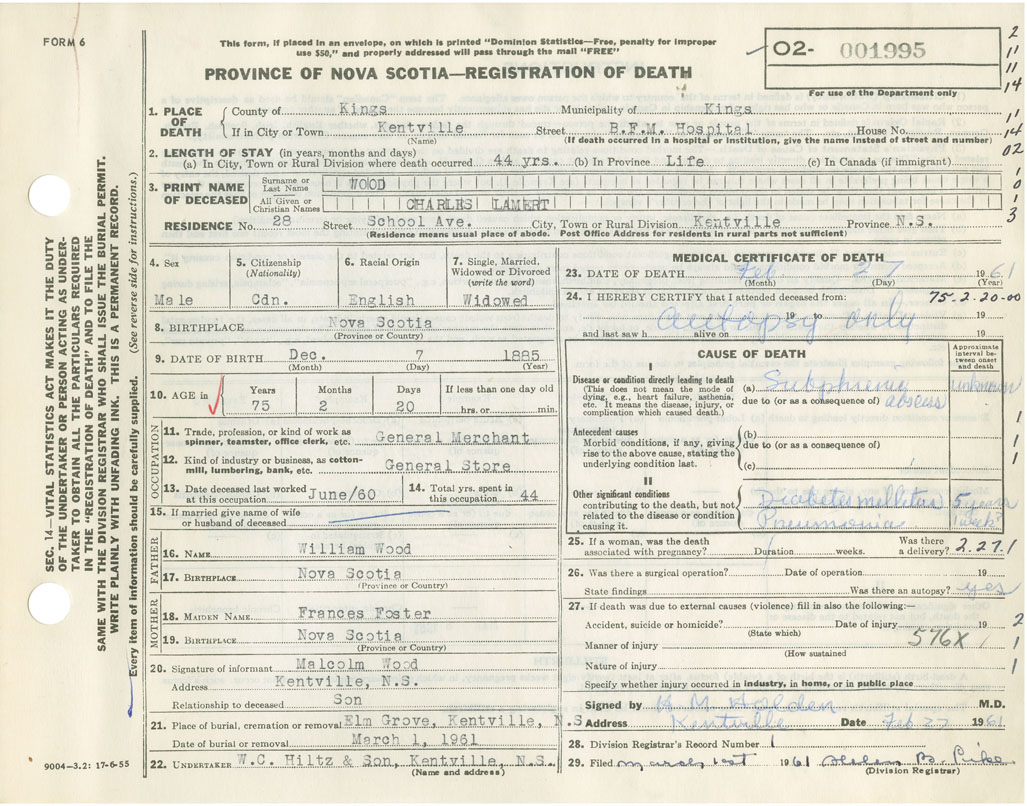 FORM 6
This form, if placed in an envelope, on which is printed "Dominion Statistics—Free, penalty for improper
use $50," and properly addressed will pass through the mail "FREE"
PROVINCE OF NOVA SCOTIA—REGISTRATION OF DEATH
02- 001995
For use of the Department only
2
11
11
14
11
14
02
1
0
1
3
SEC. 14—VITAL STATISTICS ACT MAKES IT THE DUTY
OF THE UNDERTAKER OR PERSON ACTING AS UNDER-
TAKER TO OBTAIN ALL THE PARTICULARS REQUIRED
IN THE "REGISTRATION OF DEATH" AND TO FILE THE
SAME WITH THE DIVISION REGISTRAR WHO SHALL ISSUE THE BURIAL PERMIT.
WRITE PLAINLY WITH UNFADING INK. THIS IS A PERMANENT RECORD.
Every item of information should be carefully supplied. (See reverse side for instructions.)
1. PLACE OF DEATH County of Kings Municipality of Kings
If in City or Town Kentville Street B.F.M. Hospital House No.
(Name) (If death occurred in a hospital or institution, give the name instead of street and number)
2. LENGTH OF STAY (in years, months and days)
(a) In City, Town or Rural Division where death occurred 44 yrs. (b) In Province Life (c) In Canada (if immigrant)
3. PRINT NAME OF DECEASED Surname or Last Name WOOD
All Given or Christian Names CHARLES LAMERT
RESIDENCE No. 28 Street School Ave. City, Town or Rural Division Kentville Province N.S.
(Residence means usual place of abode. Post Office Address for residents in rural parts not sufficient)
4. Sex Male
5. Citizenship (Nationality) Cdn.
6. Racial Origin English
7. Single, Married, Widowed or Divorced (write the word) Widowed
8. BIRTHPLACE Nova Scotia
(Province or Country)
9. DATE OF BIRTH Dec. 7 1885
(Month) (Day) (Year)
10. AGE in Years Months Days If less than one day old
75 2 20 hrs. or min.
OCCUPATION
11. Trade, profession, or kind of work as
spinner, teamster, office clerk, etc. General Merchant
12. Kind of industry or business, as cotton-
mill, lumbering, bank, etc. General Store
13. Date deceased last worked at this occupation June/60
14. Total yrs. spent in this occupation 44
15. If married give name of wife
or husband of deceased
FATHER
16. NAME William Wood
17. BIRTHPLACE Nova Scotia
(Province or Country)
MOTHER
18. MAIDEN NAME Frances Foster
19. BIRTHPLACE Nova Scotia
(Province or Country)
20. Signature of informant Malcolm Wood
Address Kentville, N.S.
Relationship to deceased Son
21. Place of burial, cremation or removal Elm Grove, Kentville, N.S
Date of burial or removal March 1, 1961
22. UNDERTAKER W.C. Hiltz & Son, Kentville, N.S.
(Name and address)
9004-3.2: 17-6-55
MEDICAL CERTIFICATE OF DEATH
23. DATE OF DEATH Feb 27 1961
(Month) (Day) (Year)
24. I HEREBY CERTIFY that I attended deceased from: 75-2-20-00
autopsy only 19 to 19
and last saw h alive on 19
CAUSE OF DEATH
Approximate interval between onset and death
I
Disease or condition directly leading to death
(This does not mean the mode of
dying, e.g., heart failure, asthenia,
etc. It means the disease, injury, or
complication which caused death.)
(a) Subphrenic unknown
due to (or as a consequence of) abscess
Antecedent causes
Morbid conditions, if any, giving
rise to the above cause, stating the
underlying condition last.
(b)
due to (or as a consequence of)
(c)
II
Other significant conditions
contributing to the death, but not
related to the disease or condition
causing it.
Diabetes mellitus 5 years
Pneumonia 1 week
1
1
1
25. If a woman, was the death
associated with pregnancy? Duration weeks. Was there a delivery? 2.27.1
26. Was there a surgical operation? Date of operation 19
State findings Was there an autopsy? yes
27. If death was due to external causes (violence) fill in also the following:—
Accident, suicide or homicide? Date of injury 19 2
(State which)
Manner of injury 576X 1
(How sustained
Nature of injury 1
Specify whether injury occurred in industry, in home, or in public place
Signed by M Holden M.D.
Address Kentville Date Feb 27 1961
28. Division Registrar's Record Number 1
29. Filed 1961 Helen B. Pike
(Division Registrar)